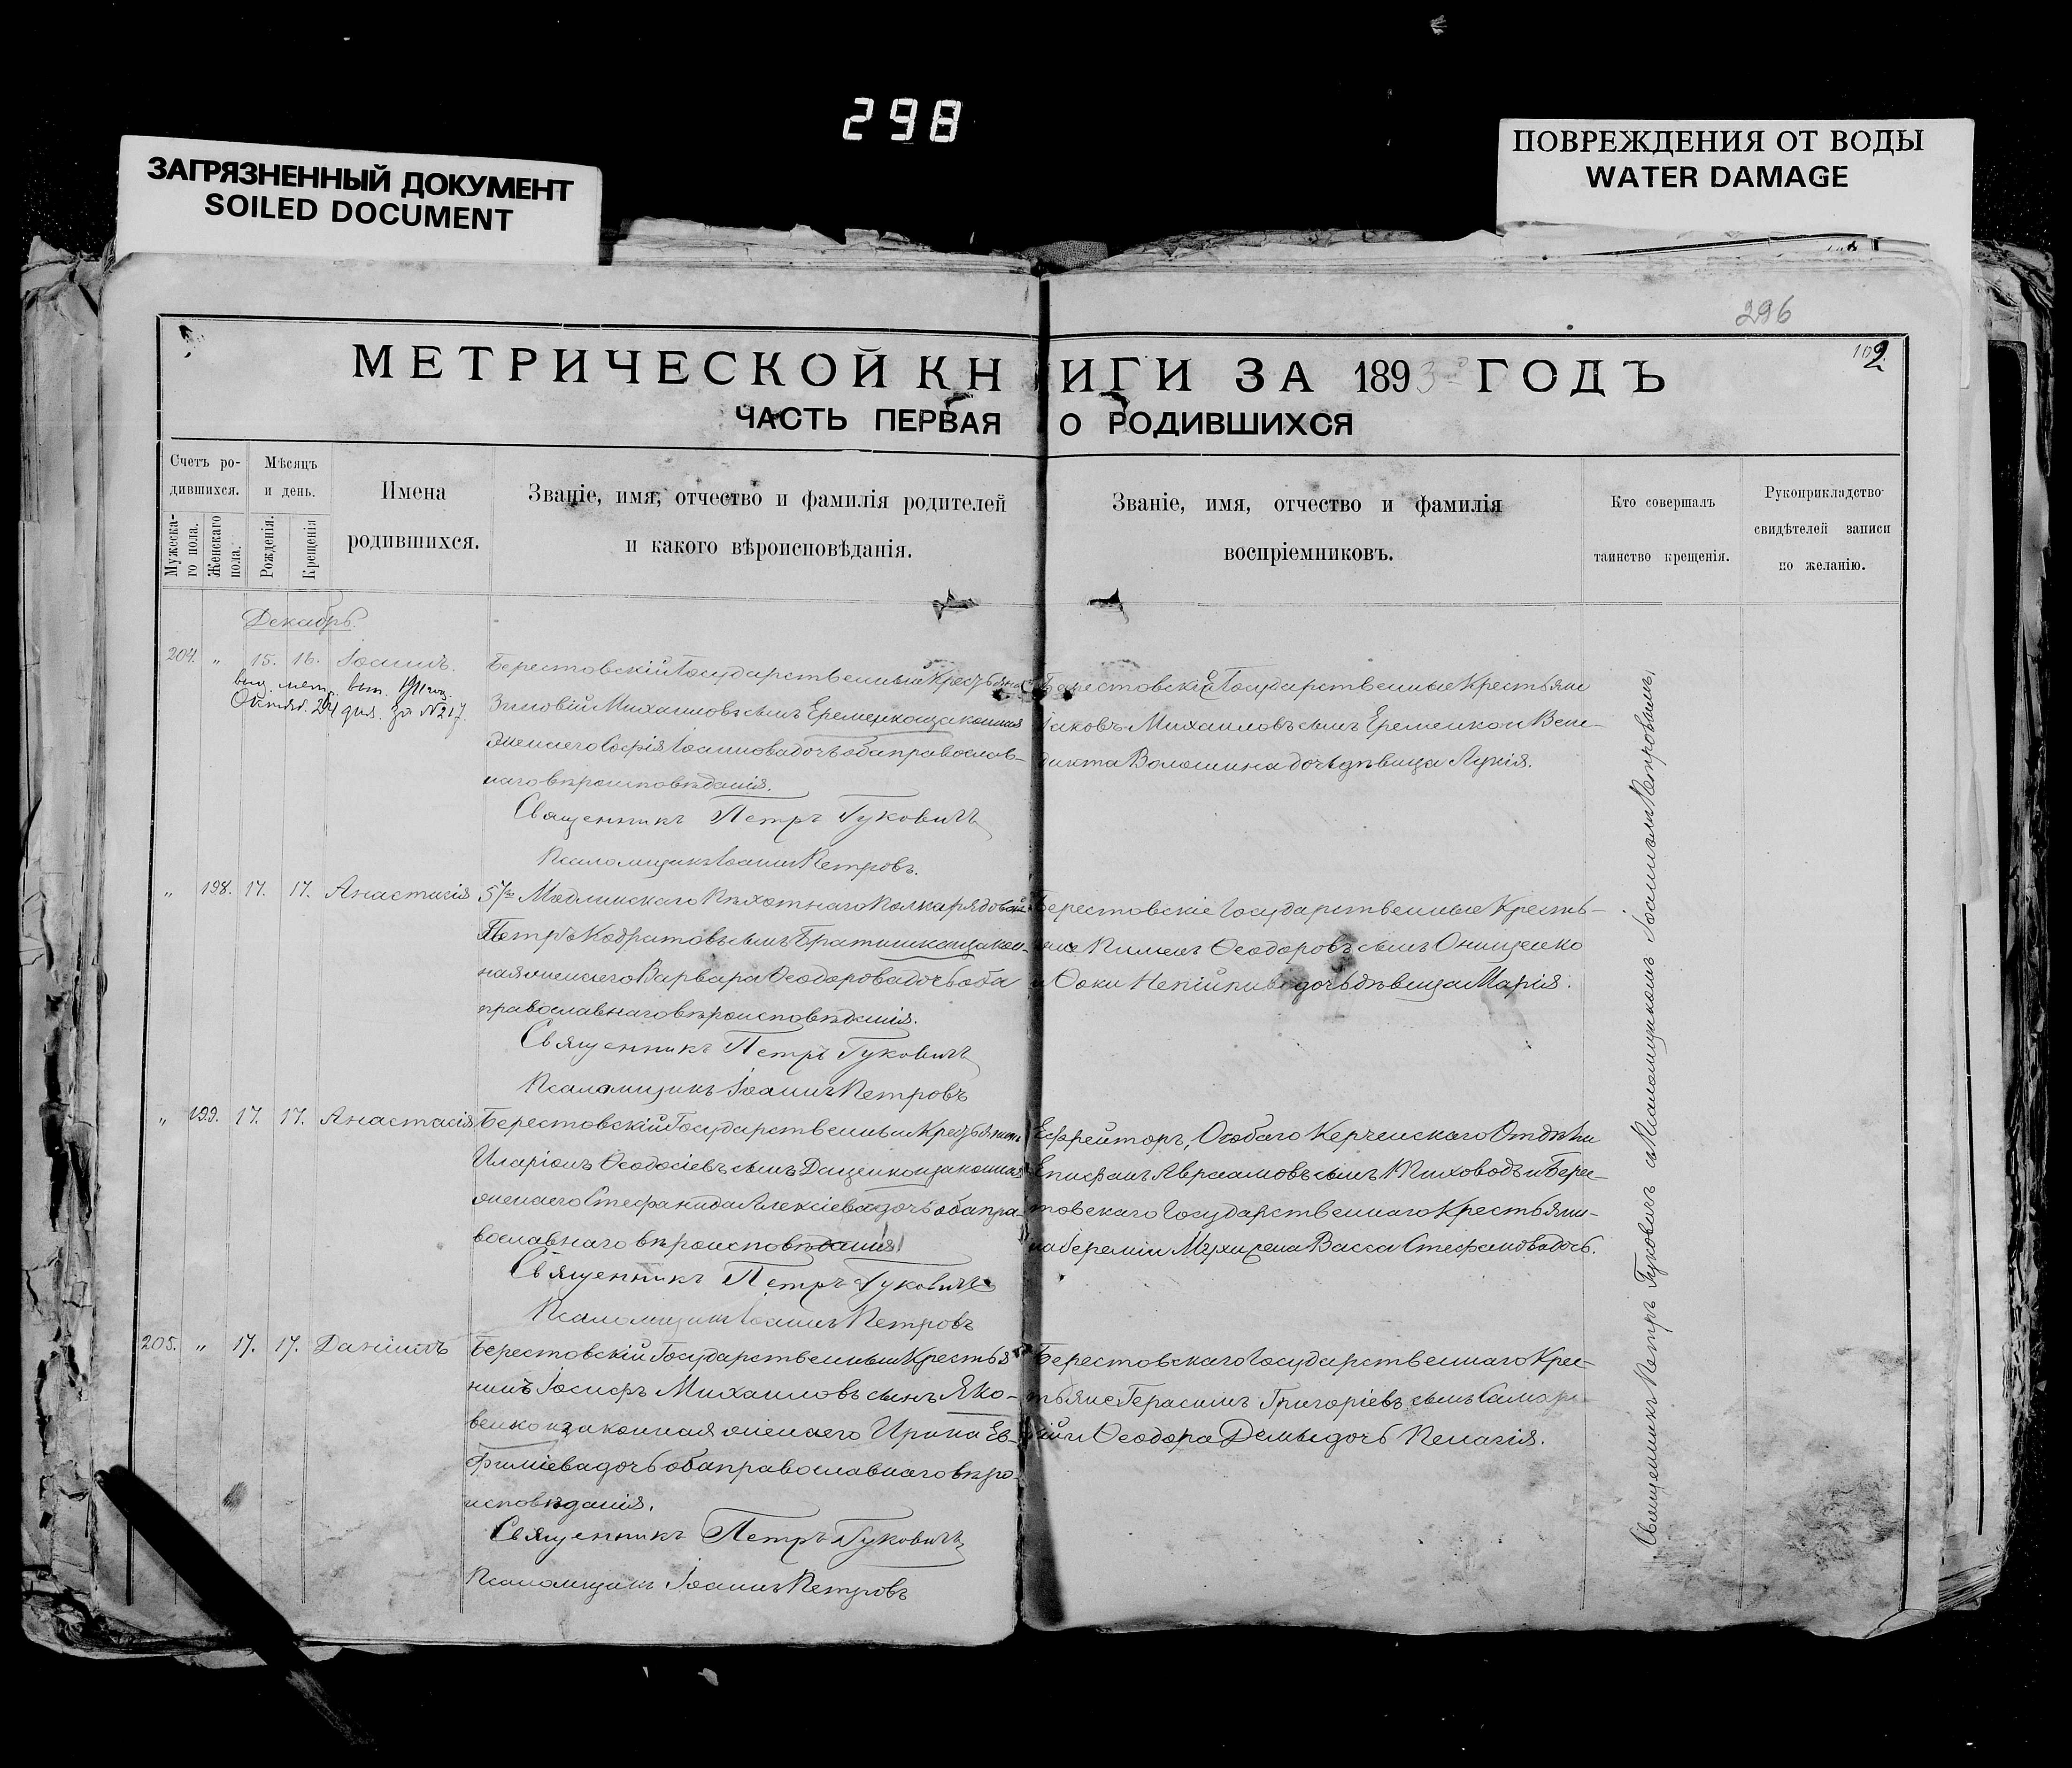 298
ЗАГРЯЗНЕННЫЙ ДОКУМЕНТ
SOILED DOCUMENT
ПОВРЕЖДЕНИЯ ОТ ВОДЫ
WATER DAMAGE
296
102
МЕТРИЧЕСКОЙ КНИГИ ЗА 1893 ГОДЪ
ЧАСТЬ ПЕРВАЯ О РОДИВШИХСЯ
Счетъ ро-
дившихся.
Мужеска-
го пола.
Женскаго
пола.
Мѣсяцъ
и день.
Рожденія.
Крещенія
Имена
родившихся.
Званіе, имя, отчество и фамилія родителей
и какого вѣроисповѣданія.
Званіе, имя, отчество и фамилія
воспріемниковъ.
Кто совершалъ
таинство крещенія.
Рукоприкладство
свидѣтелей записи
по желанію.
Декабрь.
204. " 15. 16. Іоаннъ.
выд. метр. вып. 1911 год.
Октяб. 24 дня. за №217.
Берестовскій Государственный Крестьянинъ
Зиновій Михаиловъ сынъ Еременко и законная
жена его Софія Іоаннова дочь оба православ-
наго вѣроисповѣданія.
Священникъ Петръ Гуковичъ
Псаломщикъ Іоаннъ Петровъ.
Берестовскіе Государственные Крестьяне
Іаковъ Михаиловъ сынъ Еременко и Вене-
дикта Волошина дочь дѣвица Лукія.
" 198. 17. 17. Анастасія
57го Модлинскаго Пѣхотнаго Полка рядовой
Петръ Кодратовъ сынъ Братишка и закон-
ная жена его Варвара Ѳеодорова дочь оба
православнаго вѣроисповѣданія.
Священникъ Петръ Гуковичъ
Псаломщикъ Іоаннъ Петровъ
Берестовскіе Государственные Кресть-
яне Пименъ Ѳеодоровъ сынъ Онищенко
и Фоки дочь дѣвица Марія.
" 199. 17. 17. Анастасія
Берестовскій Государственный Крестьянинъ
Иларіонъ Ѳеодосіевъ сынъ Даценко и законная
жена его Стефанида Алексіева дочь оба пра-
вославнаго вѣроисповѣданія
Священникъ Петръ Гуковичъ
Псаломщикъ Іоаннъ Петровъ
Ефрейторъ, Особаго Керченскаго Отдѣла
Епифанъ Авраамовъ сынъ и Берес-
товскаго Государственнаго Крестьяни-
на Еремии Васса Стефанова дочь.
205. " 17. 17. Даніилъ
Берестовскій Государственный Крестья-
нинъ Іосифъ Михаиловъ сынъ Яко-
венко и законная жена его Ирина Ев-
фиміева дочь оба православнаго вѣро-
исповѣданія.
Священникъ Петръ Гуковичъ
Псаломщикъ Іоаннъ Петровъ
Берестовскаго Государственнаго Крес-
тьяне Герасимъ Григоріевъ сынъ
и Ѳеодора дочь Пелагія.
Священникъ Петръ Гуковичъ съ Псаломщикомъ Іоанномъ Петровымъ.